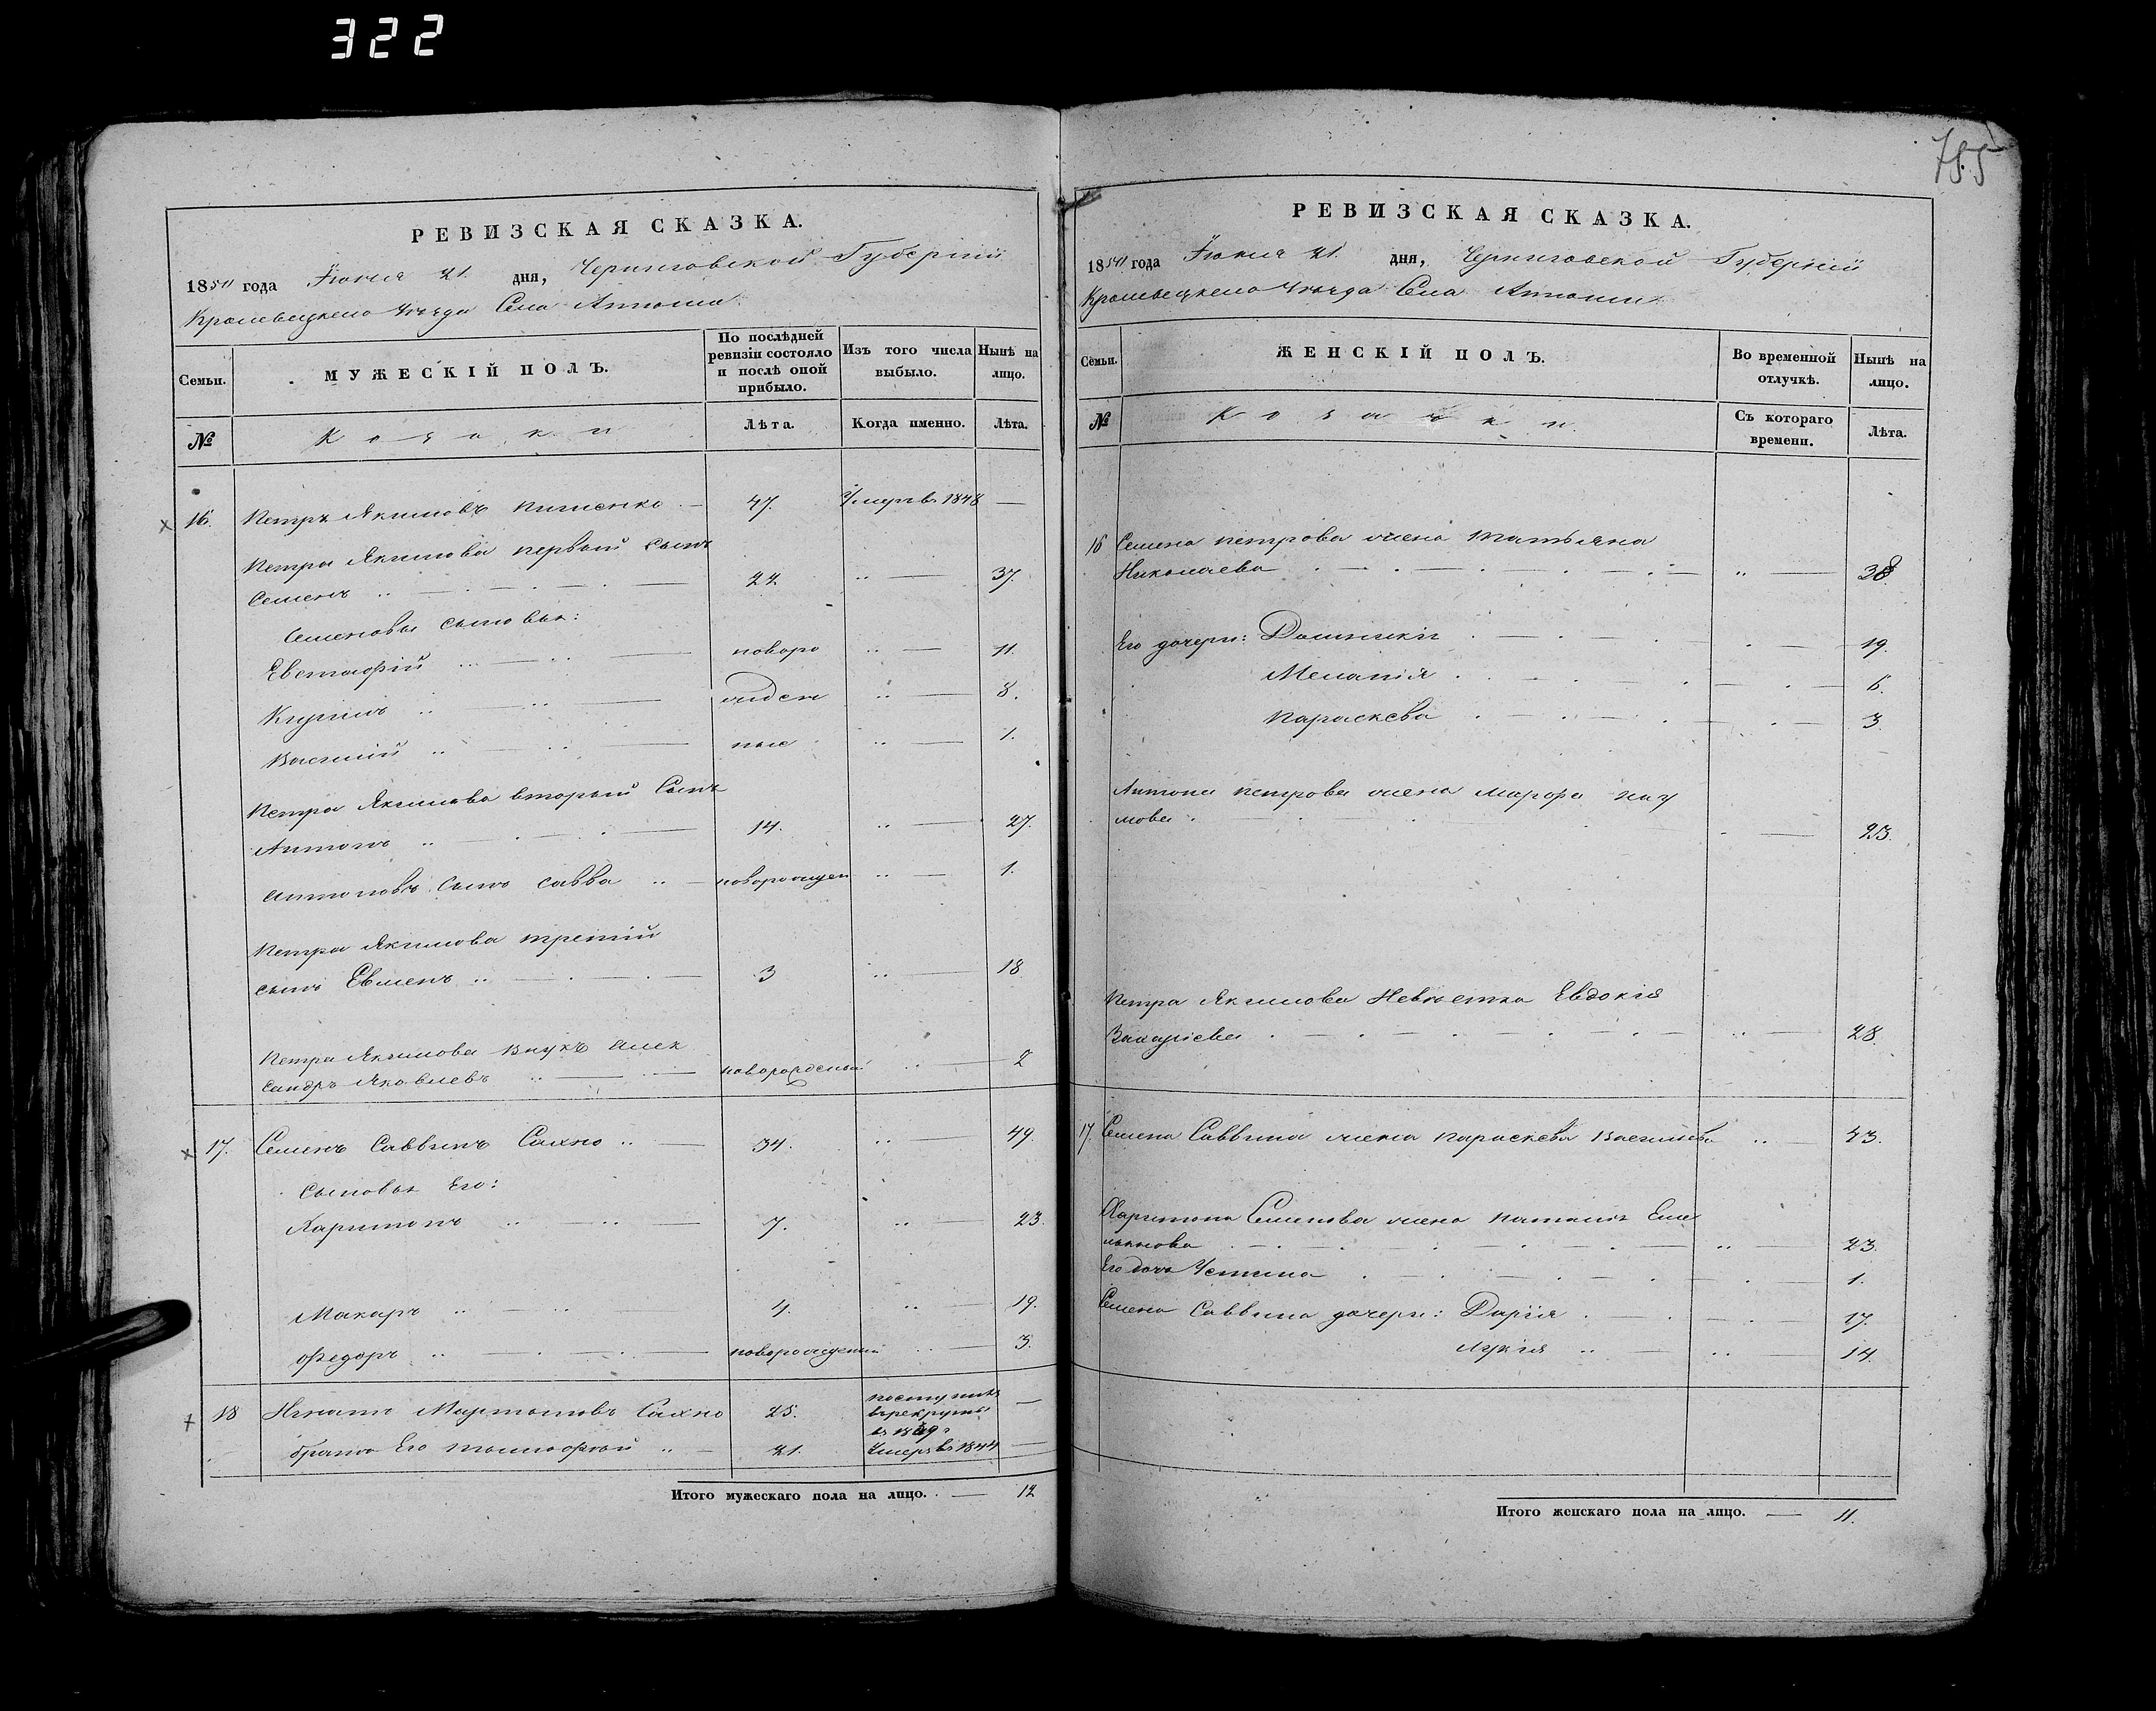 322
755
РЕВИЗСКАЯ СКАЗКА.
1851 года Іюня 21. дня, Черниговской Губерніи
Кролевецкаго Уѣзда Села
Семьи.
МУЖЕСКІЙ ПОЛЪ.
По послѣдней ревизіи состояло и послѣ оной прибыло.
Изъ того числа выбыло.
Нынѣ на лицо.
№
Козаки
Лѣта.
Когда именно.
Лѣта.
16. Петръ Якимовъ 47. Умеръ в. 1848 —
Петра Якимова первый сынъ
Семенъ 22. 37.
Семеновы сыновья:
Евстафій новоро 11.
жден 8.
Василій ные 1.
Петра Якимова вторый Сынъ
Антонъ 14. 27.
Антоновъ Сынъ Савва новорожден 1.
Петра Якимова третій
сынъ Евменъ 3 18
Петра Якимова внукъ Алек
сандръ Яковлевъ 2
17. Семенъ Саввинъ Сахно 34. 49
Сыновья Его:
Харитонъ 7. 23.
Макаръ 4. 19.
Федоръ новорожденный 3.
18 Игнатъ Мартыновъ Сахно 25. поступилъ —
в рекруты
братъ Его Тимофѣй 21. Умеръ в. 1844 —
Итого мужескаго пола на лицо. — 12
РЕВИЗСКАЯ СКАЗКА.
1851 года Іюня 21. дня, Черниговской Губерніи
Кролевецкаго Уѣзда Села
Семьи.
ЖЕНСКІЙ ПОЛЪ.
Во временной отлучкѣ.
Нынѣ на лицо.
№
Козачки
Съ котораго времени.
Лѣта.
16 Семена петрова жена Татьяна
Николаева 38.
Его дочери: Домникія 19.
Меланія 6.
Параскева 3.
Антона петрова жена Марфа Нау
мова 23.
Петра Якимова Невѣстка Евдокія
Захаріева 28.
17. Семена Саввина жена Параскева Васильева 43.
Харитона Семенова жена Наталія Еме
льянова 23.
Его дочь Устина 1.
Семена Саввина дочери: Дарія 17.
Лукія 14.
Итого женскаго пола на лицо. — 11.